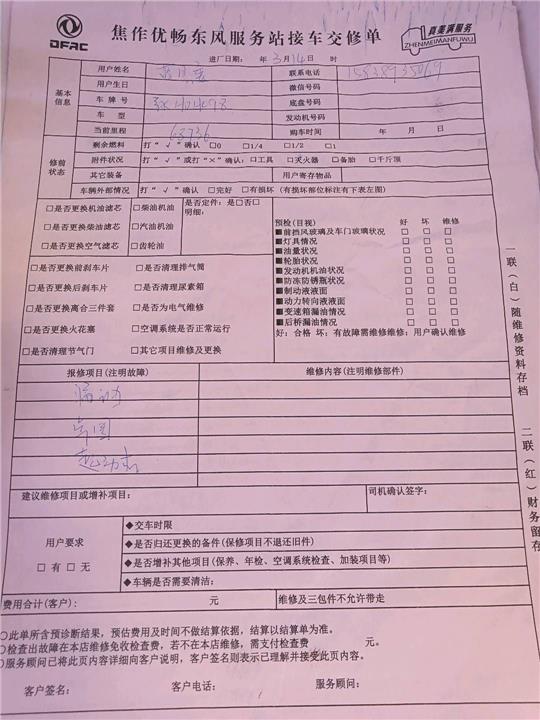 DFAC
焦作优畅东风服务站接车交修单
真美满服务
ZHENMEIMANFUWU
进厂日期: 年 3月14日 时
基本信息
用户姓名 联系电话
用户生日 微信号码
车牌号 底盘号码
车型 发动机号码
当前里程 68736 购车时间 年 月 日
修前状态
剩余燃料 打“√”确认 □0 □1/4 □1/2 □1
附件状况 打“√”或打“×”确认: □工具 □灭火器 □备胎 □千斤顶
其它装备 用户寄存物品
车辆外部情况 打“√”确认 □完好 □有损坏 (有损坏部位标注有下表左图)
□是否更换机油滤芯 □柴油机油 是否定件: 是□否□
明细:
□是否更换柴油滤芯 □汽油机油
□是否更换空气滤芯 □齿轮油
□是否更换前刹车片 □是否清理排气筒
□是否更换后刹车片 □是否清理尿素箱
□是否更换离合三件套 □是否为电气维修
□是否更换火花塞 □空调系统是否正常运行
□是否清理节气门 □其它项目维修及更换
预检(目视) 好 坏 维修
■前挡风玻璃及车门玻璃状况 □ □ □
■灯具情况 □ □ □
■油量状况 □ □ □
■轮胎状况 □ □ □
■发动机机油状况 □ □ □
■防冻防锈瓶状况 □ □ □
■制动液液面 □ □ □
■动力转向液液面 □ □ □
■变速箱漏油情况 □ □ □
■后桥漏油情况 □ □ □
好: 合格 坏: 有故障需维修维修: 用户确认维修
报修项目(注明故障) 维修内容(注明维修部件)
起动机
建议维修项目或增补项目: 司机确认签字:
用户要求
□有 □无
◆交车时限
◆是否归还更换的备件(保修项目不退还旧件)
◆是否增补其他项目(保养、年检、空调系统检查、加装项目等)
◆车辆是否需要清洁:
费用合计(客户): 元 维修及三包件不允许带走
○此单所含预诊断结果,预估费用及时间不做结算依据,结算以结算单为准。
○检查出故障在本店维修免收检查费,若不在本店维修,需支付检查费 元。
○服务顾问已将此页内容详细向客户说明,客户签名则表示已理解并接受此页内容。
客户签名: 客户电话: 服务顾问:
一联(白)随维修资料存档
二联(红)财务留存